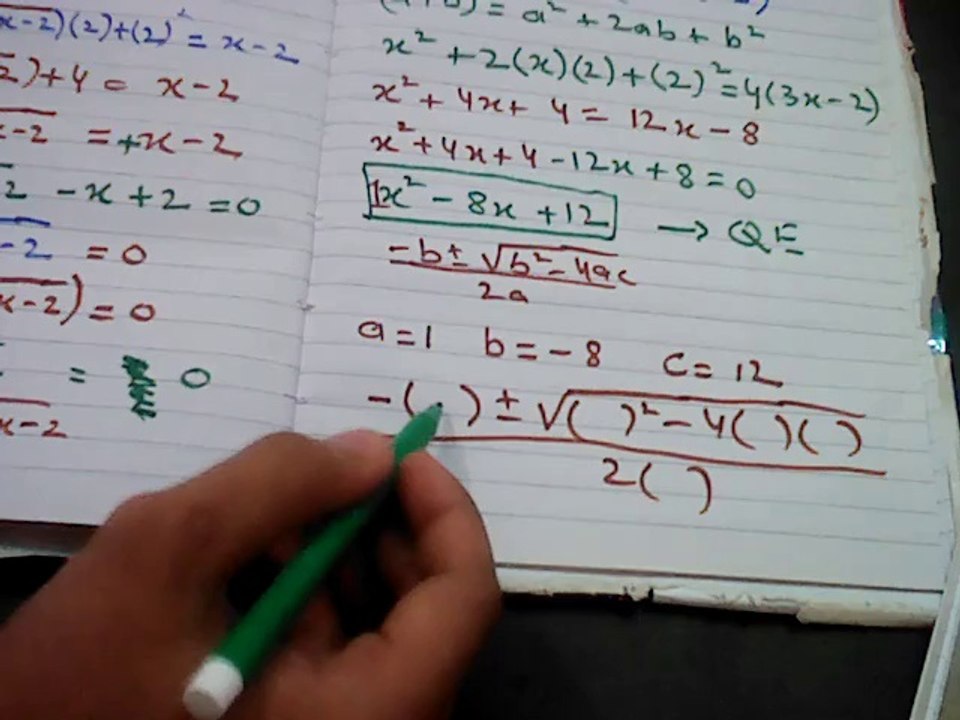 x-2)(2)+(2)² = x-2
2)+4 = x-2
x-2 = +x-2
2 -x+2=0
-2 = 0
x-2) = 0
= 0
x-2
) = a² + 2ab + b²
x² + 2(x)(2)+(2)²=4(3x-2)
x² + 4x+ 4 = 12x-8
x²+4x+4-12x+8=0
1x² - 8x +12 → QE
-b± √b²-4ac
2a
a=1 b=-8 c=12
-( ) ± √( )²-4( )( )
2( )